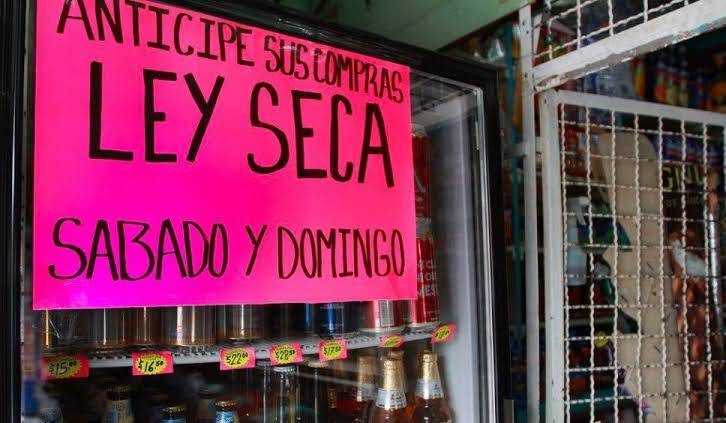 ANTICIPE SUS COMPRAS
LEY SECA
SABADO Y DOMINGO
$15.00
$16.50
$22.00
$28.50